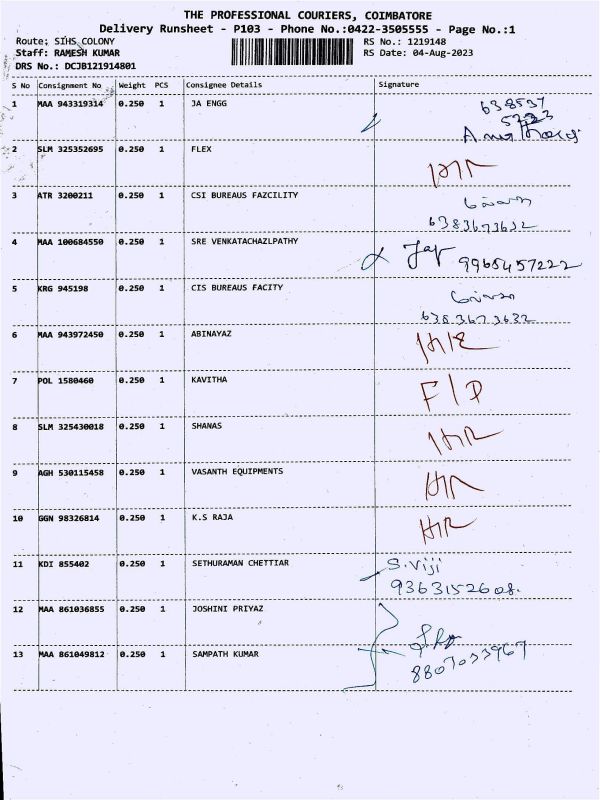 THE PROFESSIONAL COURIERS, COIMBATORE
Delivery Runsheet - P103 - Phone No.:0422-3505555 - Page No.:1
Route: SIHS COLONY RS No.: 1219148
Staff: RAMESH KUMAR RS Date: 04-Aug-2023
DRS No.: DCJB121914801
S No Consignment No Weight PCS Consignee Details Signature
1 MAA 943319314 0.250 1 JA ENGG
2 SLM 325352695 0.250 1 FLEX
3 ATR 3200211 0.250 1 CSI BUREAUS FAZCILITY
6383673632
4 MAA 100684550 0.250 1 SRE VENKATACHAZLPATHY
9965457222
5 KRG 945198 0.250 1 CIS BUREAUS FACITY
6383673632
6 MAA 943972450 0.250 1 ABINAYAZ
7 POL 1580460 0.250 1 KAVITHA F/D
8 SLM 325430018 0.250 1 SHANAS
9 AGH 530115458 0.250 1 VASANTH EQUIPMENTS
10 GGN 98326814 0.250 1 K.S RAJA
11 KDI 855402 0.250 1 SETHURAMAN CHETTIAR S.Viji
9363152608.
12 MAA 861036855 0.250 1 JOSHINI PRIYAZ
13 MAA 861049812 0.250 1 SAMPATH KUMAR
8807033967